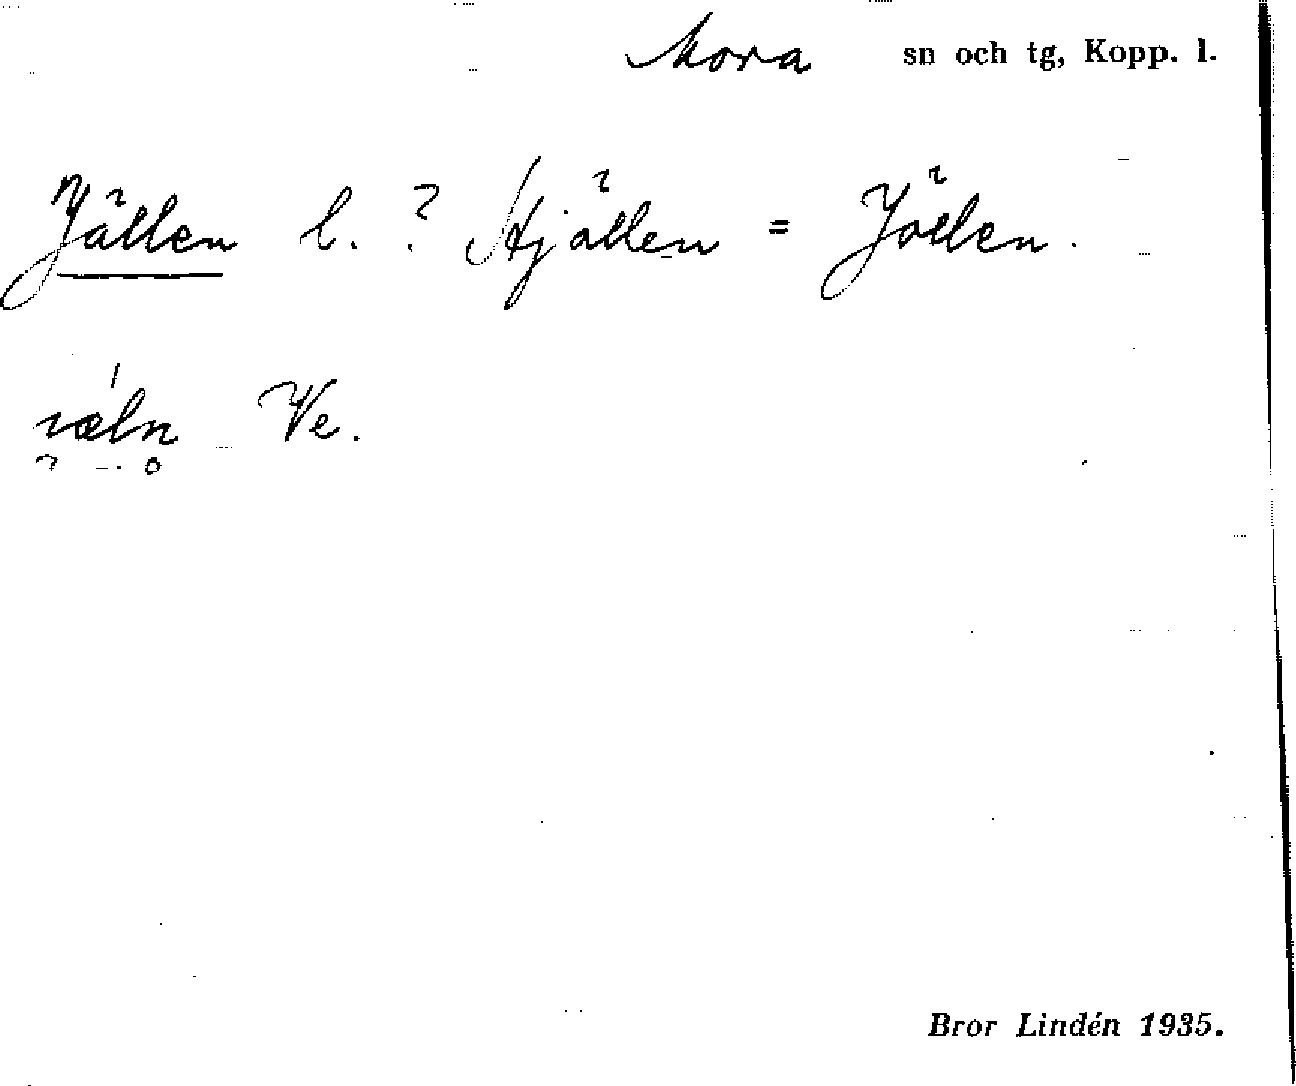 Mora sn och tg, Kopp. l.
Jällen l. ? Hjällen = Jöllen.
Ve.
Bror Lindén 1935.